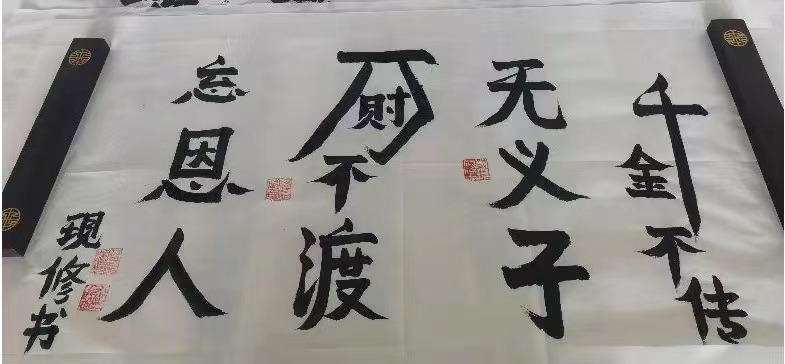 千金不传
无义子
万财不渡
忘恩人
現修书